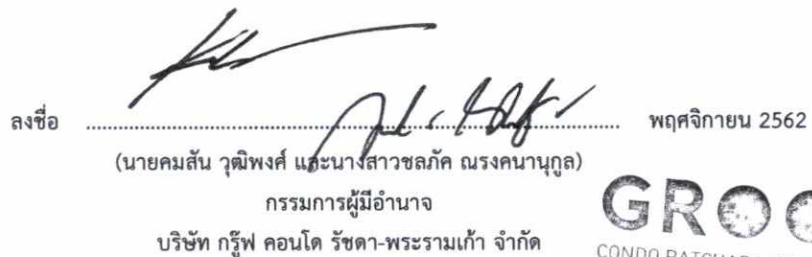 ลงชื่อ ........................................................ พฤศจิกายน 2562
(นายคมสัน วุฒิพงศ์ และนางสาวชลภัค ณรงคนานุกูล)
กรรมการผู้มีอำนาจ
บริษัท กรู๊ฟ คอนโด รัชดา-พระรามเก้า จำกัด
GROO
CONDO